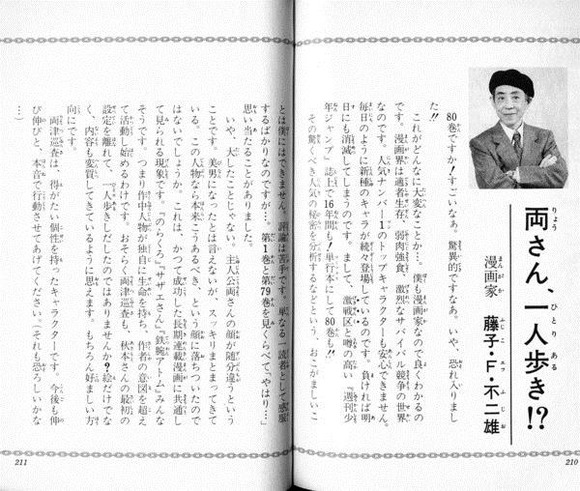 両さん、一人歩き!?
漫画家 藤子・F・不二雄
80巻ですか!すごいなあ。驚異的ですなあ。いや、恐れ入りまし
た!!
これがどんなに大変なことか…。僕も漫画家なので良くわかるの
です。漫画界は適者生存、弱肉強食、激烈なサバイバル競争の世界
なのです。人気ナンバー1のトップキャラクターも安心できません。
毎日のように新種のキャラが続々登場しているのです。負ければ明
日にも消滅してしまうのです。まして、激戦区と噂の高い『週刊少
年ジャンプ』誌上で16年間も!単行本にして80巻も!!
その驚くべき人気の秘密を分析するなどという、おこがましいこ
210
とは僕にはできません。評論は苦手です。単なる一読者として感服
するばかりなのですが…。第1巻と第79巻を見くらべて"やはり…"
思い当たることがありました。
いや、大したことじゃない。主人公両さんの顔が随分違うという
ことです。美男になったとは言えないが、スッキリまとまってきて
いる。この人物なら本来こうあるべき、という顔に落ちついたので
はないでしょうか。これは、かつて成功した長期連載漫画に共通し
て見られる現象です。『のらくろ』『サザエさん』『鉄腕アトム』みんな
そうです。つまり作中人物が独自に生命を持ち、作者の意図を超え
て活動し始めるわけです。おそらく両津巡査も、秋本さんの最初の
設定を離れて、一人歩きしだしたのではありませんか?絵だけでな
く、内容も変質してきているように思えます。もちろん好ましい方
向にです。
両津巡査は、得がたい個性を持ったキャラクターです。今後も伸
び伸びと、本音で行動させてあげてください。(それも恐ろしいかな
…)
211